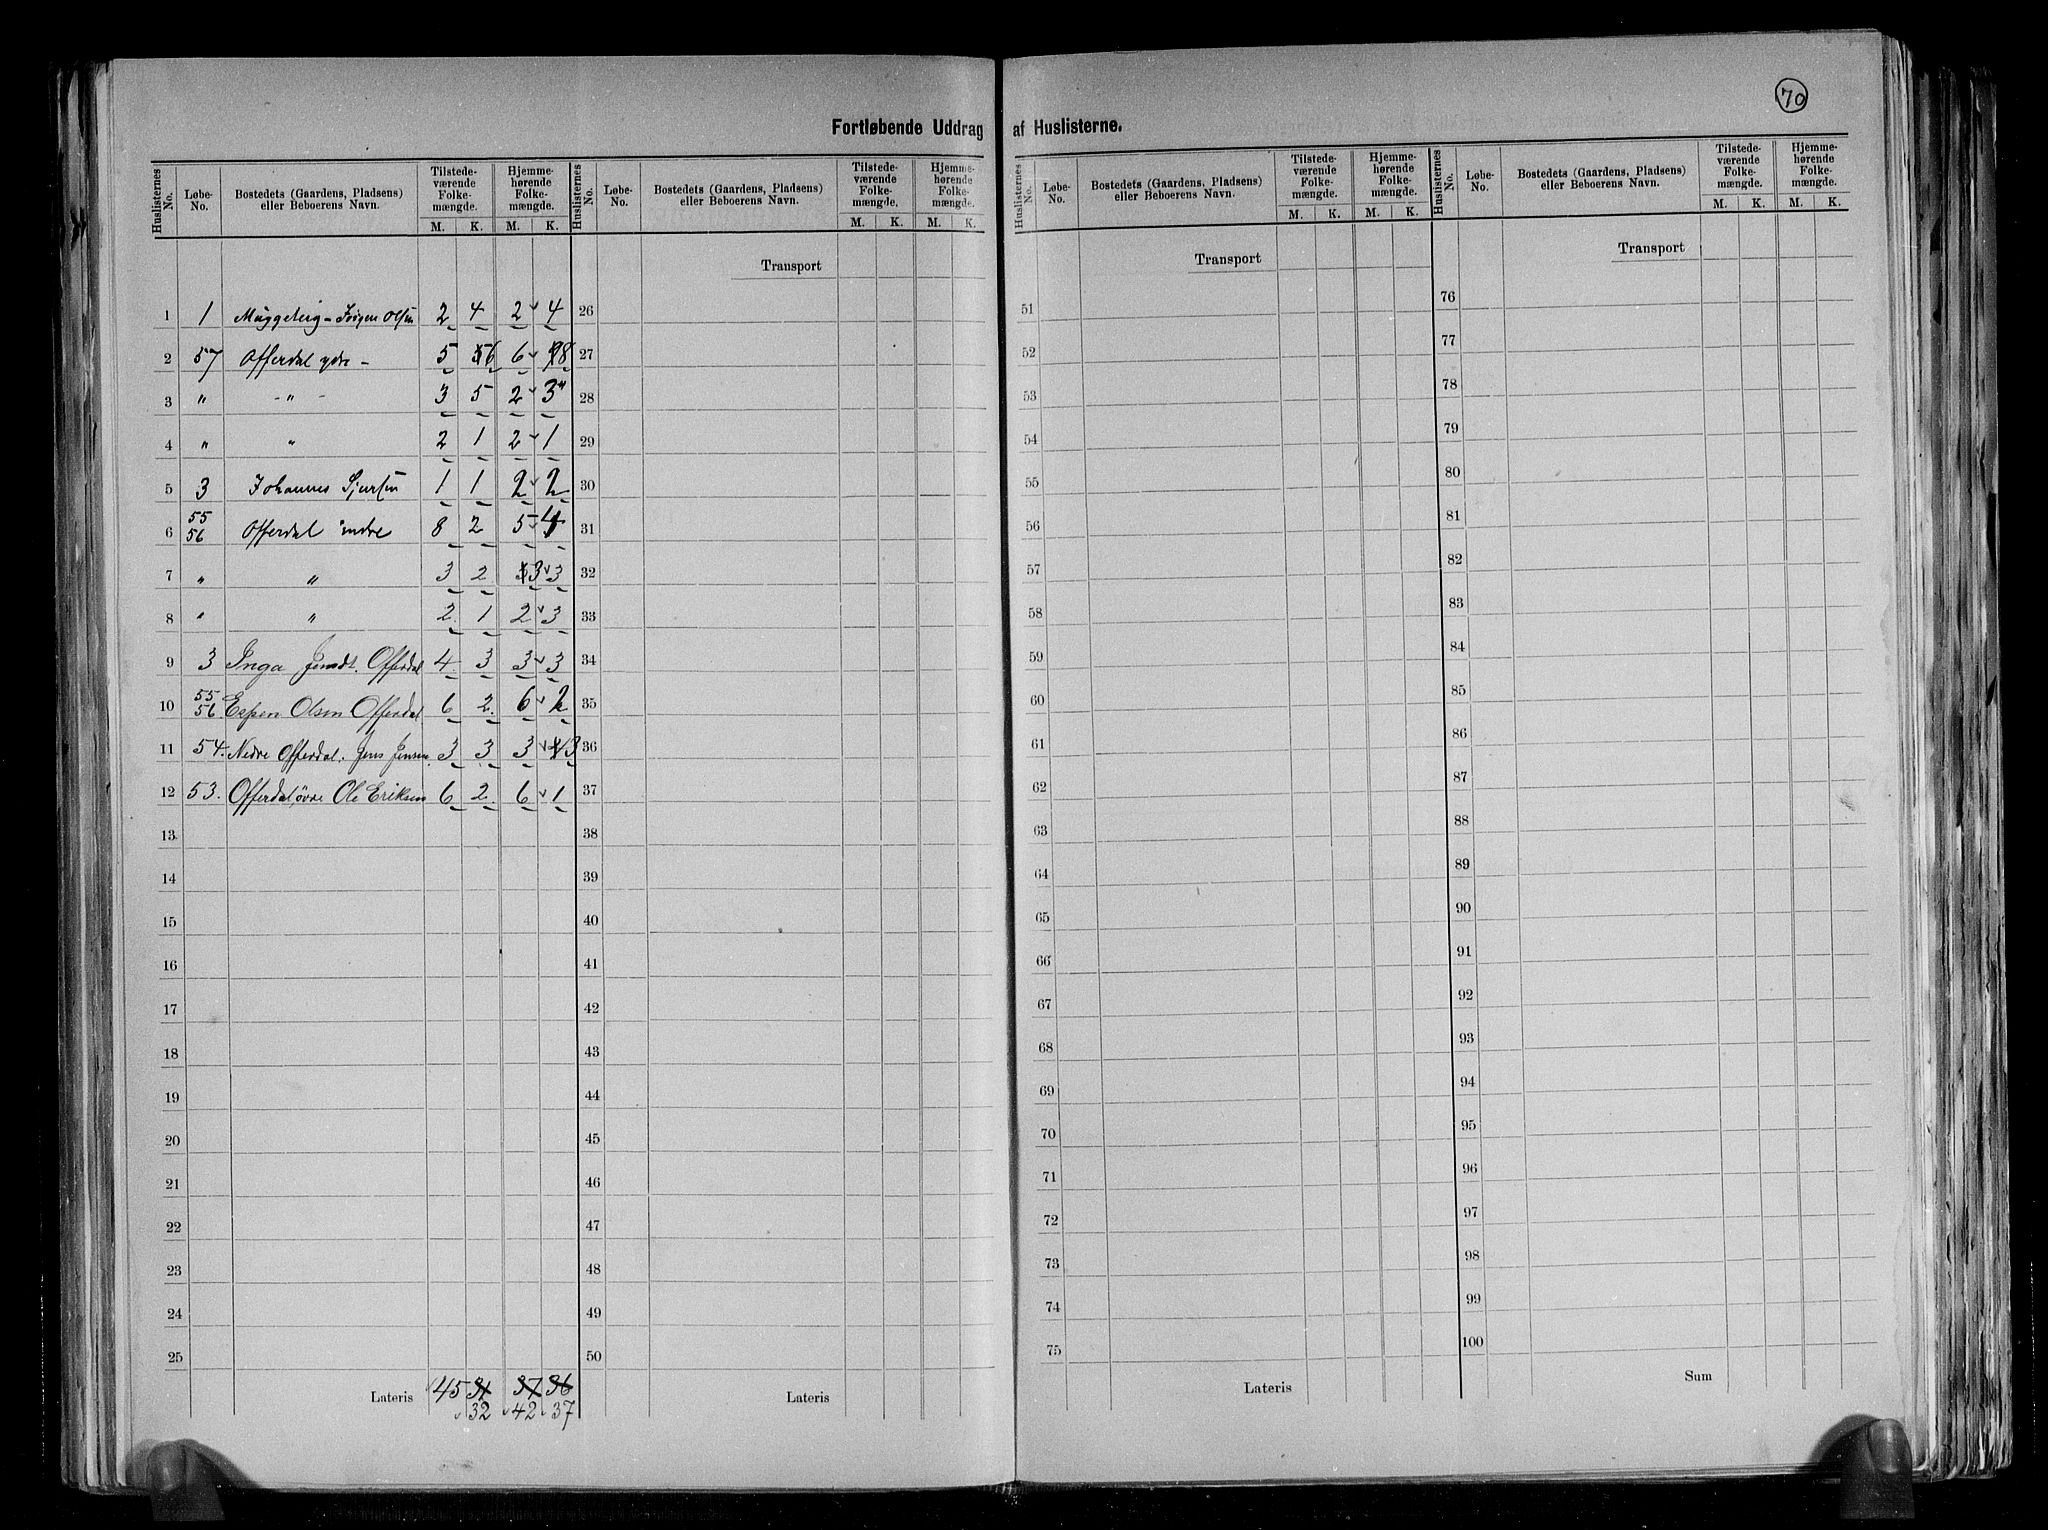 70
Fortløbende Uddrag af Huslisterne.
Huslisternes No. Løbe-No. Bostedets (Gaardens, Pladsens) eller Beboerens Navn. Tilstedeværende Folkemængde. M. K. Hjemmehørende Folkemængde. M. K.
Huslisternes No. Løbe-No. Bostedets (Gaardens, Pladsens) eller Beboerens Navn. Tilstedeværende Folkemængde. M. K. Hjemmehørende Folkemængde. M. K.
Huslisternes No. Løbe-No. Bostedets (Gaardens, Pladsens) eller Beboerens Navn. Tilstedeværende Folkemængde. M. K. Hjemmehørende Folkemængde. M. K.
Huslisternes No. Løbe-No. Bostedets (Gaardens, Pladsens) eller Beboerens Navn. Tilstedeværende Folkemængde. M. K. Hjemmehørende Folkemængde. M. K.
Transport Transport Transport
1 1 Muggeberg - Jørgen Olsen 2 4 2 4 26 51 76
2 57 Offerdal ydre - 5 6 6 8 27 52 77
3 " - " - 3 5 2 3 28 53 78
4 " " 2 1 2 1 29 54 79
5 3 Johannes Sjursen 1 1 2 2 30 55 80
6 55 56 Offerdal indre 8 2 5 4 31 56 81
7 " " 3 2 3 3 32 57 82
8 " " 2 1 2 3 33 58 83
9 3 Inga Offerdal 4 3 3 3 34 59 84
10 55 56 Espen Olsen Offerdal 6 2 6 2 35 60 85
11 54. Nedre Offerdal. Jens Jensen 3 3 3 3 36 61 86
12 53. Offerdal, øvre Ole Eriksen 6 2 6 1 37 62 87
13 38 63 88
14 39 64 89
15 40 65 90
16 41 66 91
17 42 67 92
18 43 68 93
19 44 69 94
20 45 70 95
21 46 71 96
22 47 72 97
23 48 73 98
24 49 74 99
25 50 75 100
Lateris 45 31 37 36 Lateris Lateris Sum
32 42 37